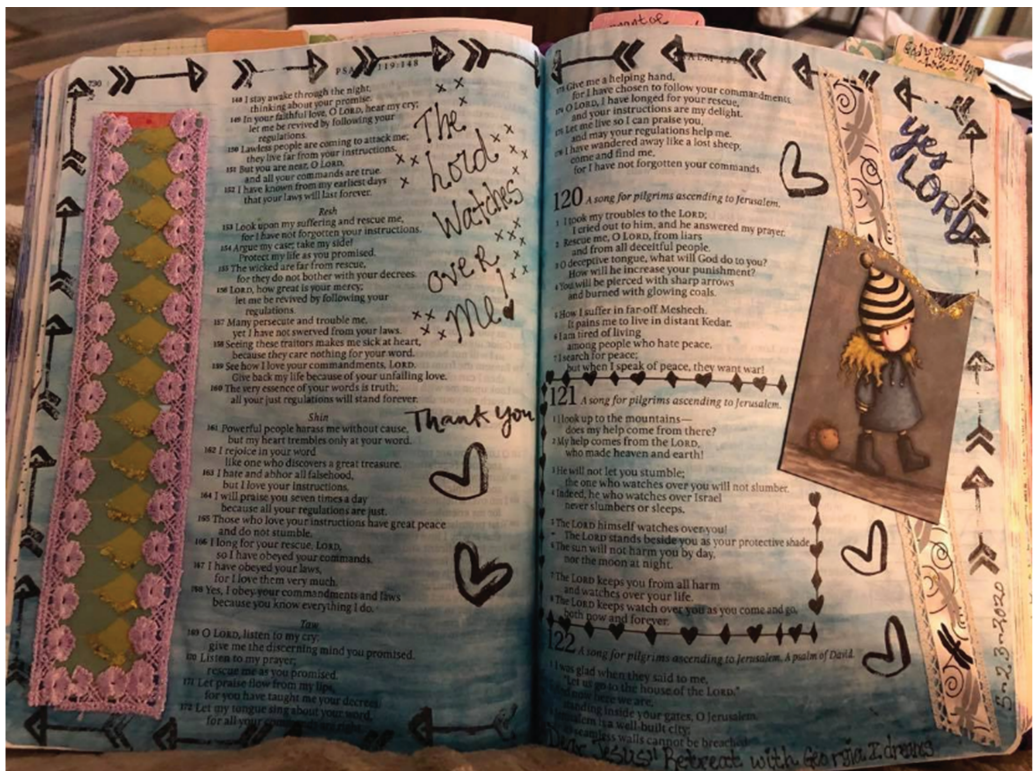 PSALM 119:148
148 I stay awake through the night,
thinking about your promise.
149 In your faithful love, O LORD, hear my cry;
let me be revived by following your
regulations.
150 Lawless people are coming to attack me;
they live far from your instructions.
151 But you are near, O LORD,
and all your commands are true.
152 I have known from my earliest days
that your laws will last forever.
Resh
153 Look upon my suffering and rescue me,
for I have not forgotten your instructions.
154 Argue my case; take my side!
Protect my life as you promised.
155 The wicked are far from rescue,
for they do not bother with your decrees.
156 LORD, how great is your mercy;
let me be revived by following your
regulations.
157 Many persecute and trouble me,
yet I have not swerved from your laws.
158 Seeing these traitors makes me sick at heart,
because they care nothing for your word.
159 See how I love your commandments, LORD.
Give back my life because of your unfailing love.
160 The very essence of your words is truth;
all your just regulations will stand forever.
Shin
161 Powerful people harass me without cause,
but my heart trembles only at your word.
162 I rejoice in your word
like one who discovers a great treasure.
163 I hate and abhor all falsehood,
but I love your instructions.
164 I will praise you seven times a day
because all your regulations are just.
165 Those who love your instructions have great peace
and do not stumble.
166 I long for your rescue, LORD,
so I have obeyed your commands.
167 I have obeyed your laws,
for I love them very much.
168 Yes, I obey your commandments and laws
because you know everything I do.
Taw
169 O LORD, listen to my cry;
give me the discerning mind you promised.
170 Listen to my prayer;
rescue me as you promised.
171 Let praise flow from my lips,
for you have taught me your decrees.
172 Let my tongue sing about your word,
for all your commands are right.
The
Lord
Watches
over
Me!
Thank you
Give me a helping hand,
for I have chosen to follow your commandments.
O LORD, I have longed for your rescue,
and your instructions are my delight.
Let me live so I can praise you,
and may your regulations help me.
I have wandered away like a lost sheep;
come and find me,
for I have not forgotten your commands.
120 A song for pilgrims ascending to Jerusalem.
1 I took my troubles to the LORD;
I cried out to him, and he answered my prayer.
2 Rescue me, O LORD, from liars
and from all deceitful people.
3 O deceptive tongue, what will God do to you?
How will he increase your punishment?
4 You will be pierced with sharp arrows
and burned with glowing coals.
5 How I suffer in far-off Meshech.
It pains me to live in distant Kedar.
6 I am tired of living
among people who hate peace.
7 I search for peace;
but when I speak of peace, they want war!
121 A song for pilgrims ascending to Jerusalem.
1 I look up to the mountains—
does my help come from there?
2 My help comes from the LORD,
who made heaven and earth!
3 He will not let you stumble;
the one who watches over you will not slumber.
4 Indeed, he who watches over Israel
never slumbers or sleeps.
5 The LORD himself watches over you!
The LORD stands beside you as your protective shade.
6 The sun will not harm you by day,
nor the moon at night.
7 The LORD keeps you from all harm
and watches over your life.
8 The LORD keeps watch over you as you come and go,
both now and forever.
122 A song for pilgrims ascending to Jerusalem. A psalm of David.
1 I was glad when they said to me,
"Let us go to the house of the LORD."
And now here we are,
standing inside your gates, O Jerusalem.
Jerusalem is a well-built city;
seamless walls cannot be breached.
yes
LORD
5-23-2020
Dear Jesus Retreat with Georgia